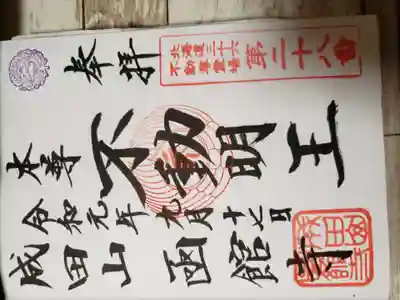 奉拝
北海道三十六
不動尊霊場
第二十八番
本尊 不動明王
令和元年九月十七日
成田山函館寺